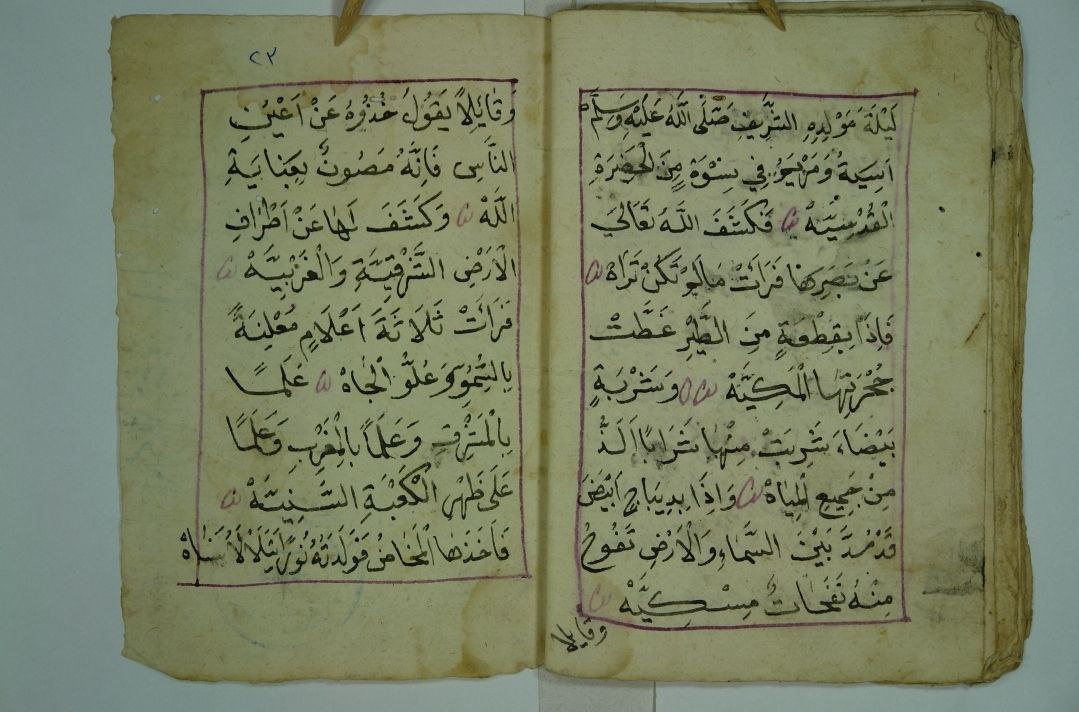 لَيْلَةَ مَوْلِدِهِ الشَّرِيفِ صَلَّى اللَّهُ عَلَيْهِ وَسَلَّمَ
اَسِيَةُ وَمَرْيَمُ فِي نِسْوَةٍ مِنَ الْحَضِرَةِ
الْقُدْسِيَّهْ فَكَشَفَ اللَّهُ تَعَالَى
عَنْ بَصَرِهَا فَرَأَتْ مَا لَمْ تَكُنْ تَرَاهْ
فَاِذَا بِقِطْعَةٍ مِنَ الطَّيْرِ غَطَّتْ
حُجْرَتَهَا الْمَكِيَّهْ وَشَرْبَةٍ
بَيْضَاءَ شَرِبَتْ مِنْهَا شَرَابًا اَلَذُّ
مِنْ جَمِيعِ الْمِيَاهْ وَاِذَا بِدِيبَاجٍ اَبْيَضَ
قَدْ مُدَّ بَيْنَ السَّمَاءِ وَالْاَرْضِ تَفُوحُ
مِنْهُ نَفَحَاتٌ مِسْكِيَّهْ
وقايلا
٢٣
وَقَايِلًا يَقُولُ خُذُوهُ عَنْ اَعْيُنِ
النَّاسِ فَاِنَّهُ مَصُونٌ بِعِنَايَةِ
اللَّهْ وَكَشَفَ لَهَا عَنْ اَطْرَافِ
الْاَرْضِ الشَّرْقِيَّةِ وَالْغَرْبِيَّهْ
فَرَأَتْ ثَلَاثَةَ اَعْلَامٍ مُعْلِنَةً
بِالسُّمُوِّ وَعُلُوِّ الْجَاهْ عَلَمًا
بِالْمَشْرِقِ وَعَلَمًا بِالْمَغْرِبِ وَعَلَمًا
عَلَى ظَهْرِ الْكَعْبَةِ السَّنِيَّهْ
فَاَخَذَهَا الْمَخَاضُ فَوَلَدَتْهُ نُورًا يَتَلَالَاُ سَنَاهْ